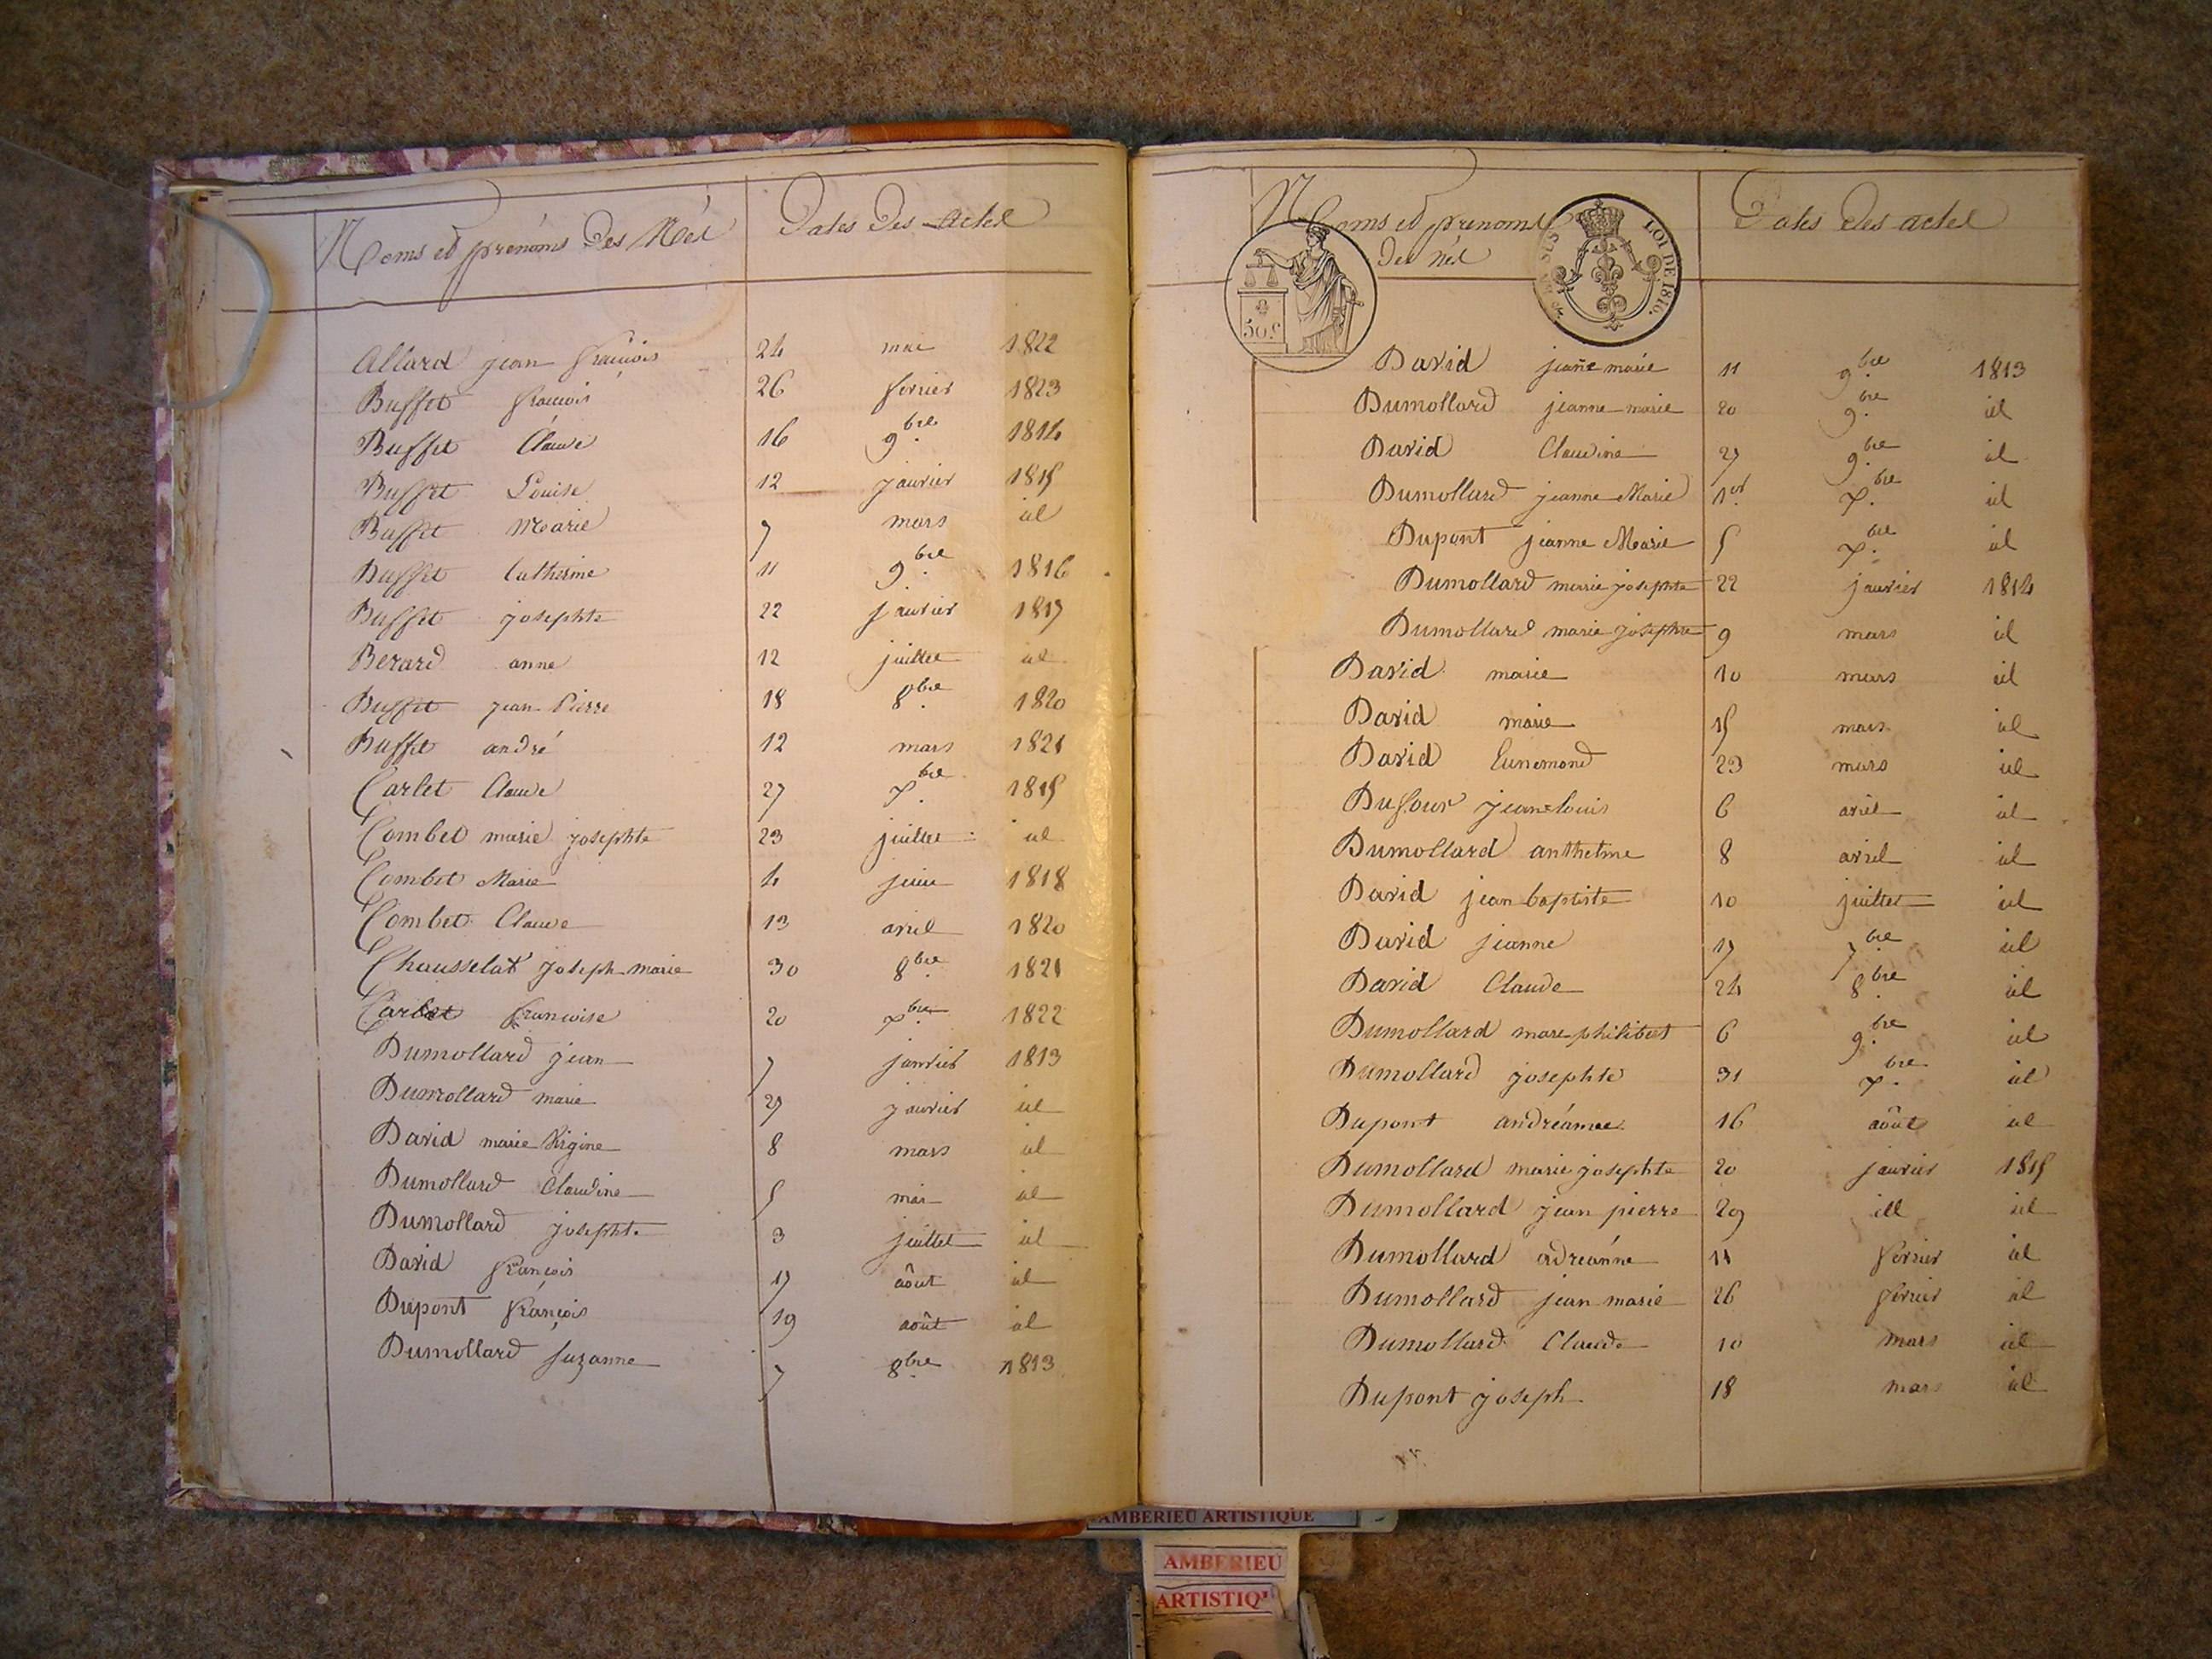 Noms et prénoms des Nés Dates des actes
Allard jean françois 24 mai 1822
Buffet françois 26 fevrier 1823
Buffet Claude 16 9.bre 1814
Buffet Louise 12 janvier 1815
Buffet Marie 7 mars id
Buffet Catherine 11 9.bre 1816
Buffet josephte 22 janvier 1817
Berard anne 12 juillet id
Buffet jean Pierre 18 8.bre 1820
Buffet andré 12 mars 1821
Carlet Claude 27 bre 1815
Combet marie josephte 23 juillet id
Combet Marie 4 juin 1818
Combet Claude 13 avril 1820
Chausselat joseph marie 30 8.bre 1821
Carlet francoise 20 bre 1822
Dumollard jean 7 janvier 1813
Dumollard marie 27 janvier id
David marie Rigine 8 mars id
Dumollard Claudine 5 mai id
Dumollard josephte 3 juillet id
David françois 17 aôut id
Dupont françois 19 août id
Dumollard suzanne 7 8.bre 1813
Noms et prenoms
des nés Dates des actes
50 c.
LOI DE 1816.
David jeanne marie 11 9.bre 1813
Dumollard jeanne marie 20 9.bre id
David Claudine 27 9.bre id
Dumollard jeanne Marie 1er bre id
Dupont jeanne Marie 5 bre id
Dumollard marie josephte 22 janvier 1814
Dumollard marie josephte 9 mars id
David marie 10 mars id
David marie 15 mars id
David Ennemond 23 mars id
Dufour jean louis 6 avril id
Dumollard anthelme 8 avril id
David jean baptiste 10 juillet id
David jeanne 17 7bre id
David Claude 24 8.bre id
Dumollard marc philibert 6 9.bre id
Dumollard josephte 31 bre id
Dupont andréanne 16 aôut id
Dumollard marie josephte 20 janvier 1815
Dumollard jean pierre 29 id id
Dumollard adreánne 11 fevrier id
Dumollard jean marie 26 fevrier id
Dumollard Claude 10 mars id
Dupont joseph 18 mars id
AMBERIEU ARTISTIQUE
AMBERIEU
ARTISTIQ